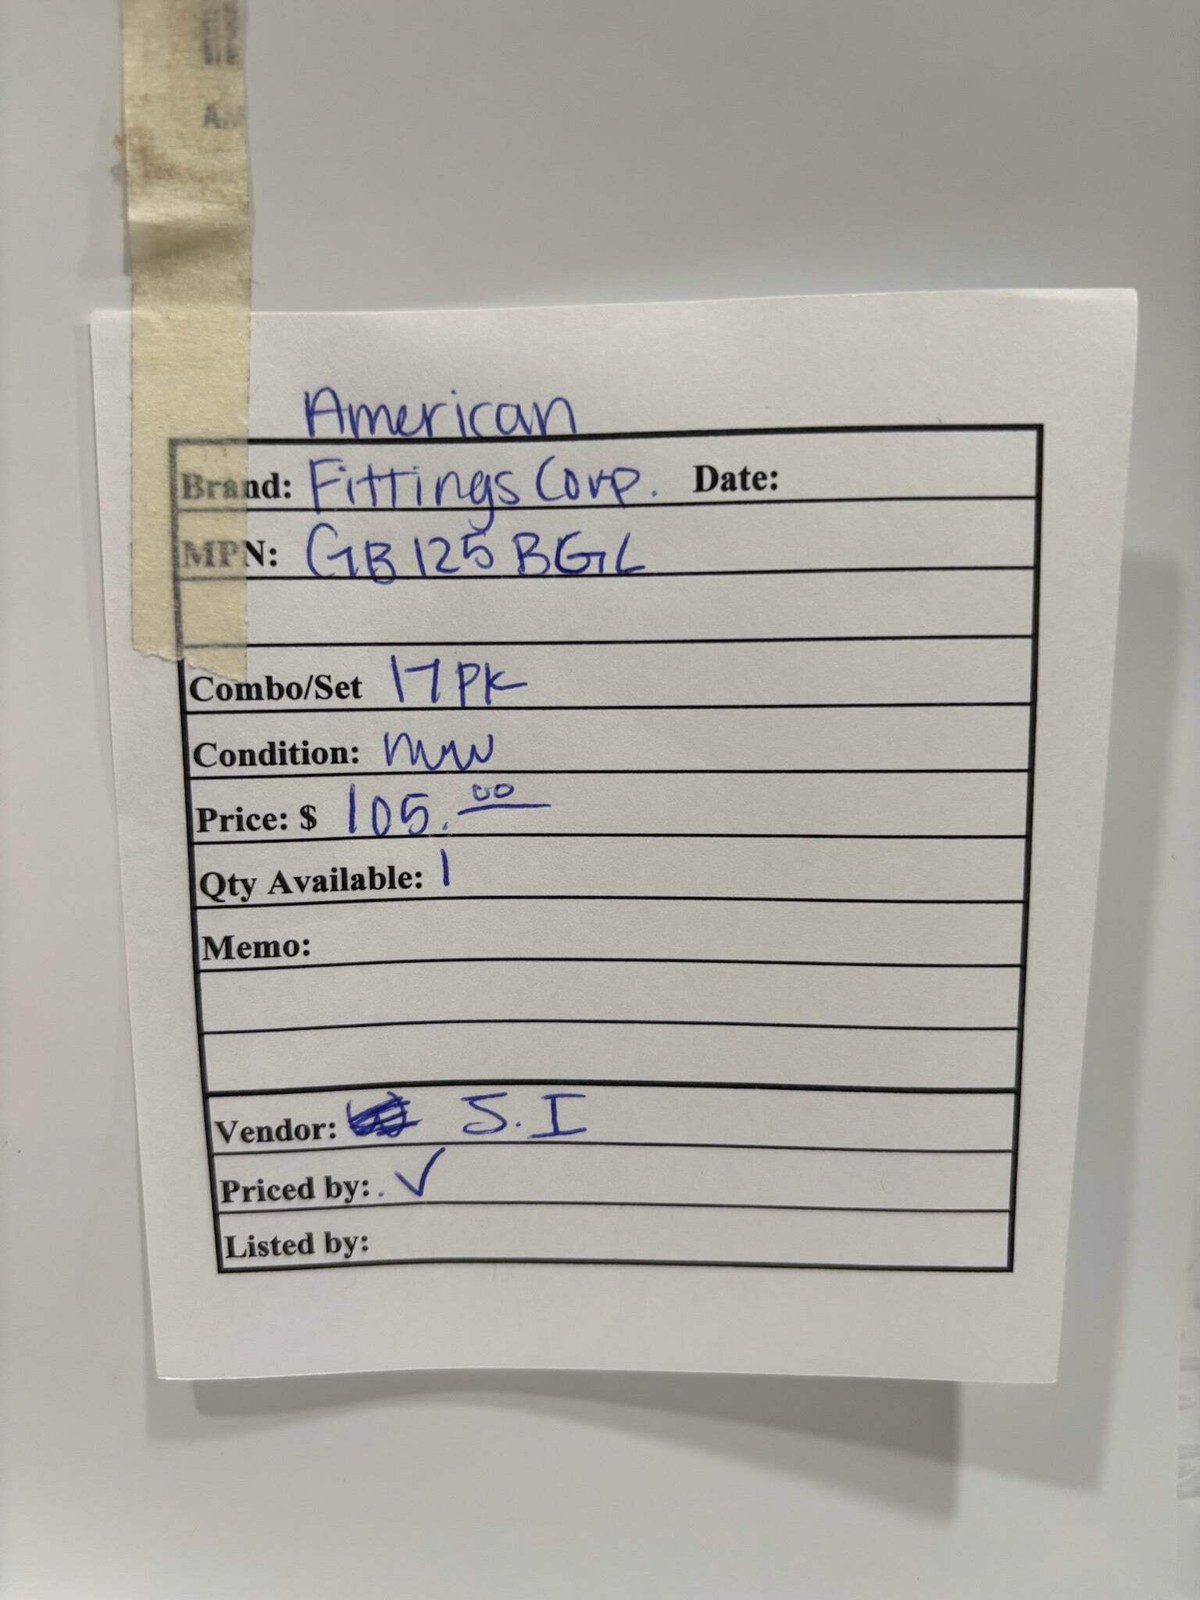 American
Brand: Fittings Corp. Date:
MPN: GB125BGL
Combo/Set 17PK
Condition: new
Price: $ 105.00
Qty Available: 1
Memo:
Vendor: S.I
Priced by: ✓
Listed by: